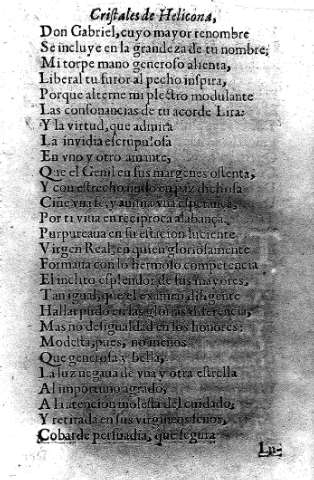 Criſtales de Helicona,
Don Gabriel, cuyo mayor renombre
Se incluye en la grandeza de tu nombre;
Mi torpe mano generoſo alienta,
Liberal tu furor al pecho inſpira,
Porque alterne mi plectro modulante
Las conſonancias de tu acorde Lira:
Y la virtud, que admira
La invidia eſcrupuloſa
En vno y otro amante,
Que el Genil en ſus margenes oſtenta,
Y con eſtrecho nudo en paz dichoſa
Ciñe vna fe, y anima vna eſperança,
Por ti viua en reciproca alabança.
Purpureaua en ſu eſtacion luciente
Virgen Real, en quien glorioſamente
Formaua con lo hermoſo competencia
El inclito eſplendor de ſus mayores,
Tan igual, que el examen diligente
Hallar pudo en las glorias diferencia,
Mas no deſigualdad en los honores:
Modeſta, pues, no menos
Que generoſa y bella,
La luz negaua de vna y otra eſtrella
Al importuno agrado,
A la atencion moleſta del cuidado;
Y retirada en ſus virgineos ſenos,
Cobarde perſuadia, que ſegura